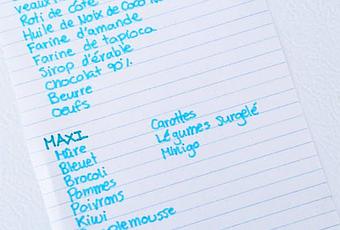 veaux
Roti de côte
Huile de Noix de Coco
Farine d'amande
Farine de tapioca
Sirop d'érable
Chocolat 90%
Beurre
Oeufs
MAXI
Mûre
Bleuet
Brocoli
Pommes
Poivrons
Kiwi
Carottes
Légumes Surgelé
Minigo